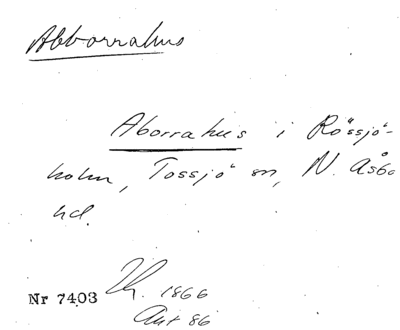 Abborrahus
Aborrahus i Rössjö-
holm, Tossjö sn, N. Åsbo
hd.
Nr 7403 Th. 1866
Ant 86